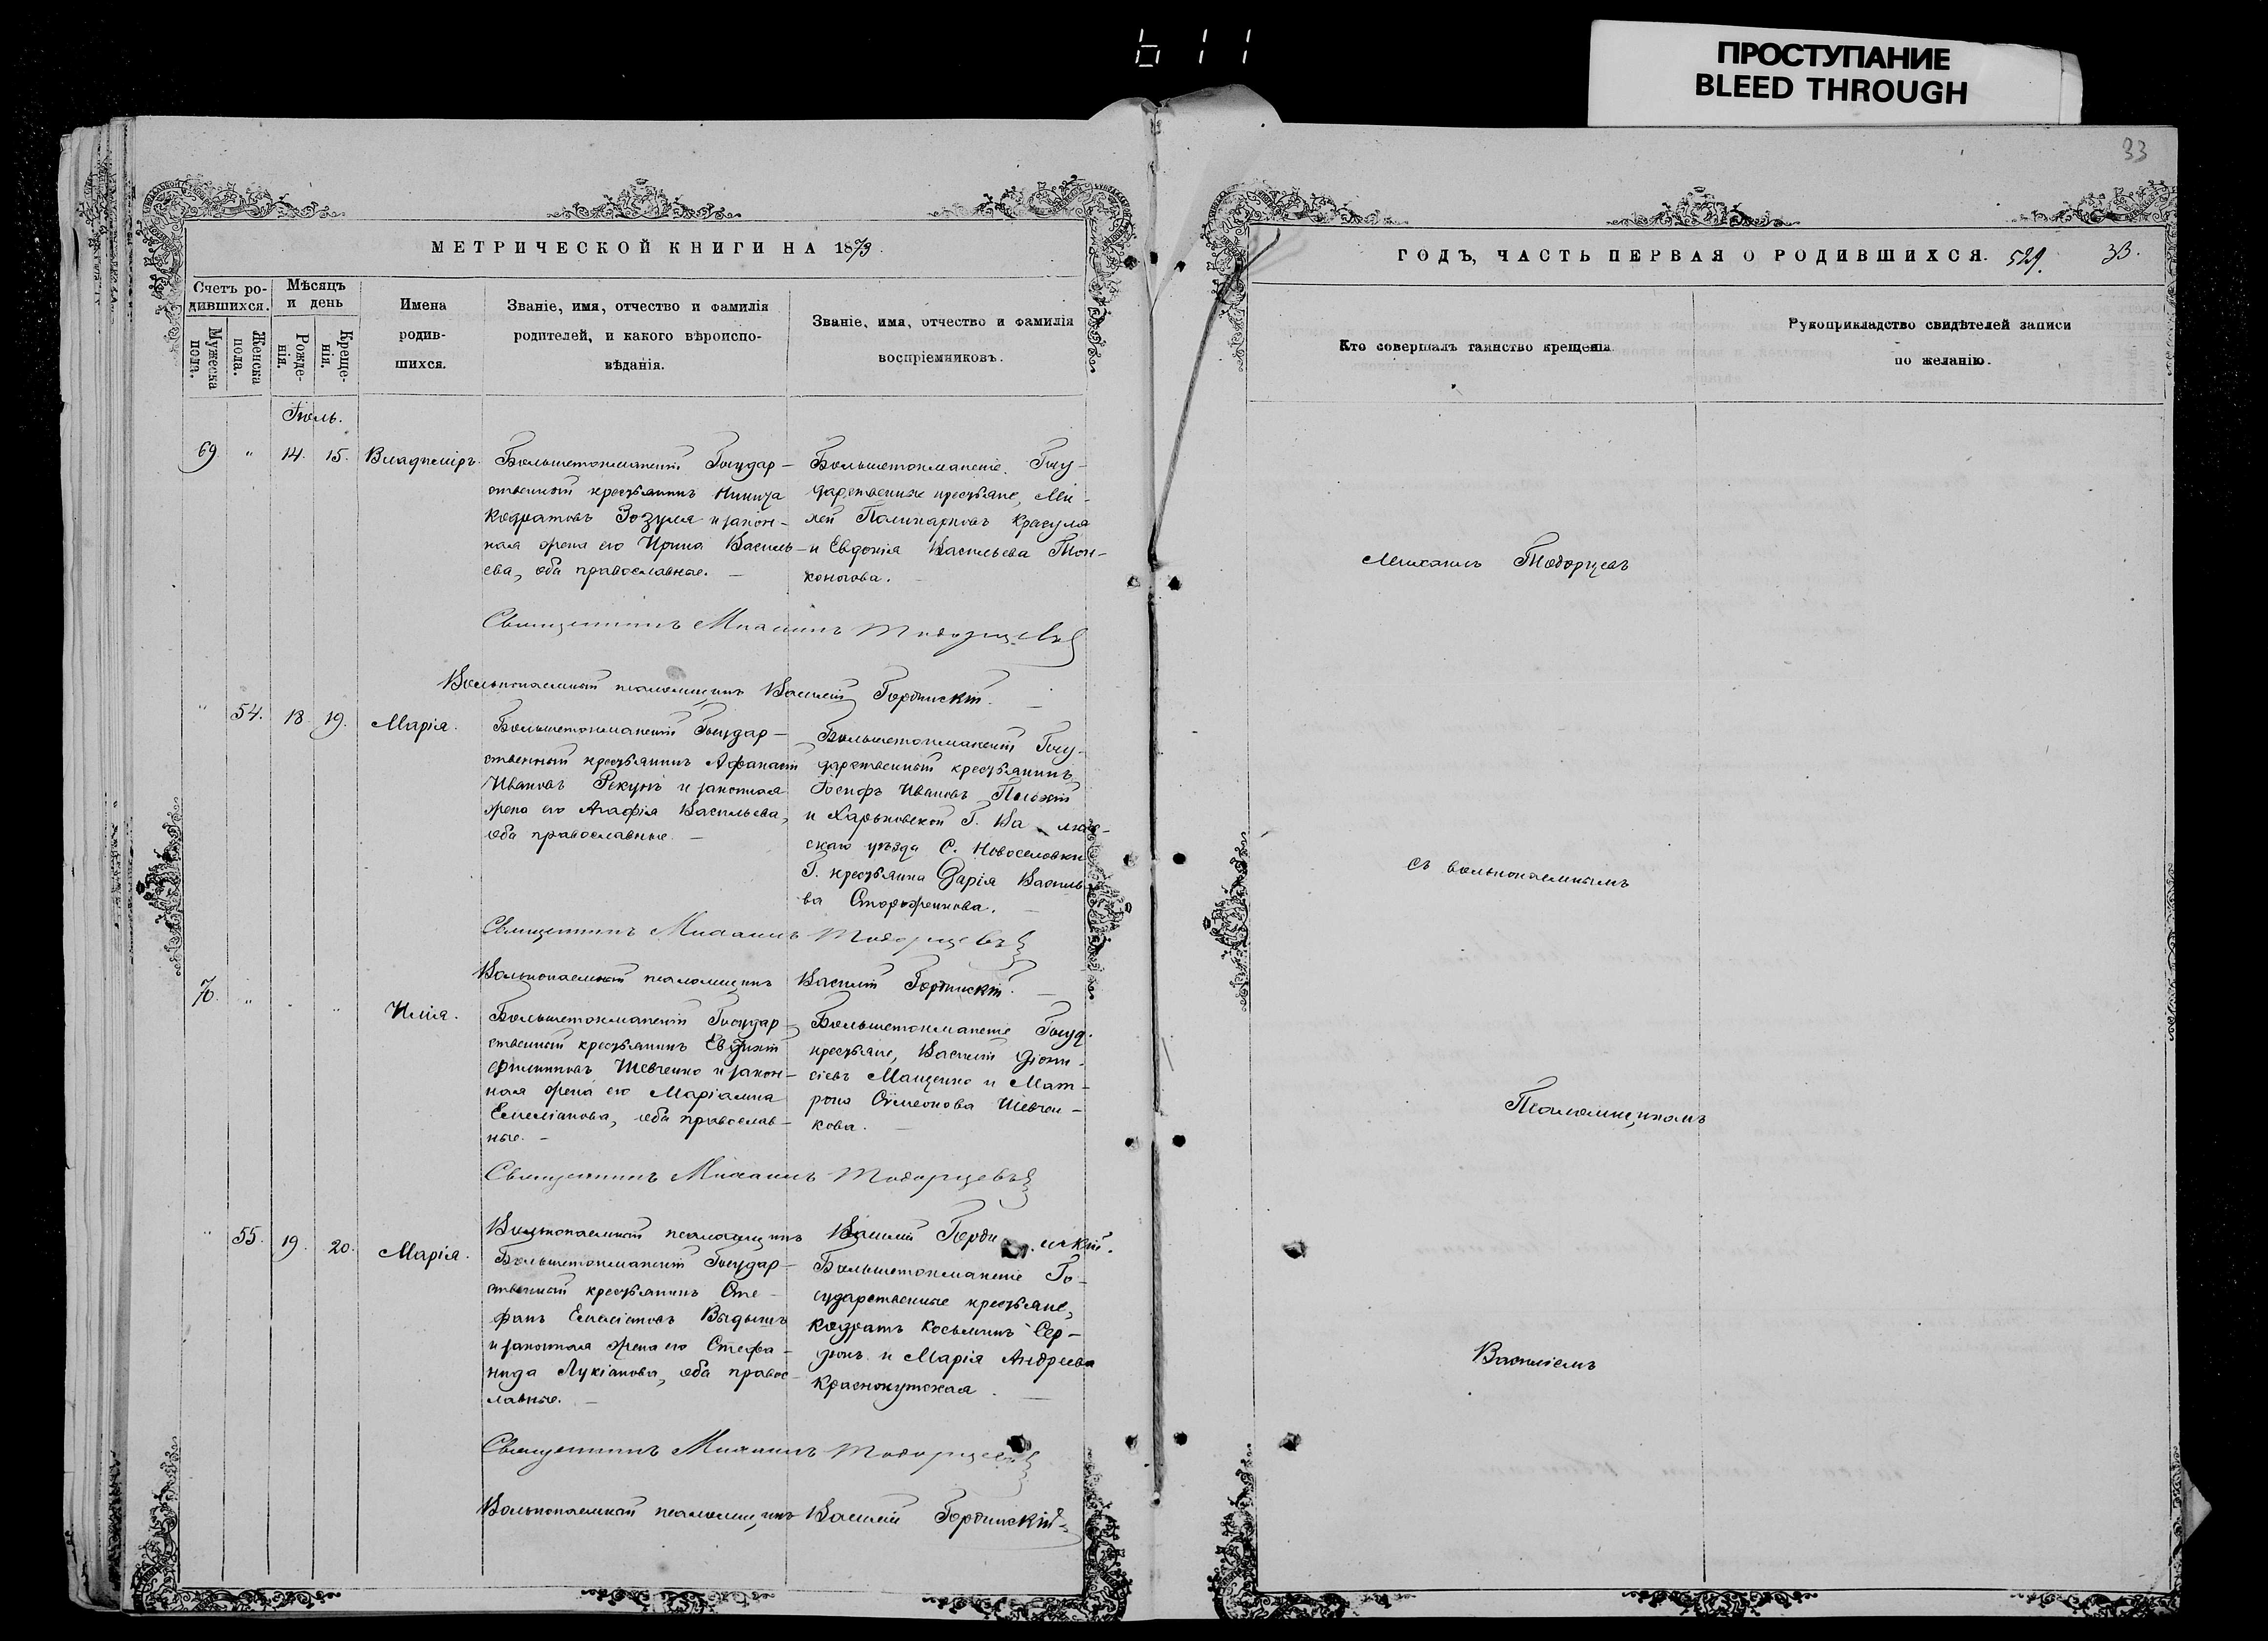 ПРОСТУПАНИЕ
BLEED THROUGH
611
33
МЕТРИЧЕСКОЙ КНИГИ НА 1879
Счетъ ро-
дившихся.
Мѣсяцъ
и день
Мужеска
пола.
Женска
пола.
Рожде-
нія.
Креще-
нія.
Имена
родив-
шихся.
Званіе, имя, отчество и фамилія
родителей, и какого вѣроиспо-
вѣданія.
Званіе, имя, отчество и фамилія
воспріемниковъ.
Іюль.
69 " 14. 15. Владиміръ.
Большетокмакскій Государ-
ственный крестьянинъ Никита
Кодратовъ Зозуля и закон-
ная жена его Ирина Василь-
ева, оба православные. —
Большетокмакскіе Госу-
дарственные крестьяне,
Поликарповъ Красуля
и Евдокія Васильева Тон-
коногова.
Священникъ Михаилъ Тодорцевъ
Вольнонаемный псаломщикъ Василій
" 54. 18 19. Марія.
Большетокмакскій Государ-
ственный крестьянинъ Афанасій
Ивановъ Рекунъ и законная
жена его Агафія Васильева,
оба православные. —
Большетокмакскій Госу-
дарственный крестьянинъ
Іосифъ Ивановъ
и Харьковской Г.
скаго уѣзда С. Новоселовки
Г. крестьянка Дарія Василь-
ва Сторожникова.
Священникъ Михаилъ Тодорцевъ
Вольнонаемный псаломщикъ Василій
70. " Илія.
Большетокмакскій Государ-
ственный крестьянинъ Евфимій
Филипповъ Шевченко и закон-
ная жена его Маріамна
Емеліанова, оба православ-
ные. —
Большетокмакскіе Госуд.
крестьяне, Василій Діони-
сіевъ Мащенко и Мат-
рона Симеонова Шевчен-
кова.
Священникъ Михаилъ Тодорцевъ
Вольнонаемный псаломщикъ Василій
" 55. 19. 20. Марія.
Большетокмакскій Государ-
ственный крестьянинъ Сте-
фанъ Емеліановъ
и законная жена его Стефа-
нида Лукіанова, оба правос-
лавные. —
Большетокмакскіе Го-
сударственные крестьяне,
Кодратъ Косьминъ Сер-
дюкъ и Марія Андреева
Краснокутская
Священникъ Михаилъ Тодорцевъ
Вольнонаемный псаломщикъ Василій
ГОДЪ, ЧАСТЬ ПЕРВАЯ О РОДИВШИХСЯ. 529. 33.
Кто совершалъ таинство крещенія.
Рукоприкладство свидѣтелей записи
по желанію.
Михаилъ Тодорцевъ
съ вольнонаемнымъ
Псаломщикомъ
Василіемъ